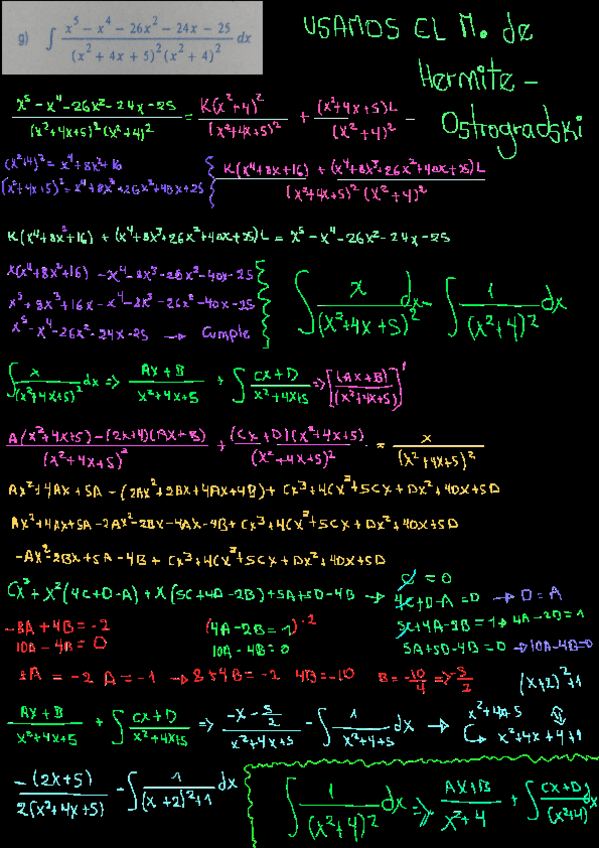 g) ∫ (x⁵ − x⁴ − 26x² − 24x − 25)/((x² + 4x + 5)²(x² + 4)²) dx
USAMOS EL M. de
Hermite -
Ostrogradski
(x⁵-x⁴-26x²-24x-25)/((x²+4x+5)²(x²+4)²) = K(x²+4)²/(x²+4x+5)² + (x²+4x+5)L/(x²+4)² -
(x²+4)² = x⁴+8x²+16
(x²+4x+5)² = x⁴+8x³+26x²+40x+25
(K(x⁴+8x²+16) + (x⁴+8x³+26x²+40x+25)L)/((x²+4x+5)²(x²+4)²)
K(x⁴+8x²+16) + (x⁴+8x³+26x²+40x+25)L = x⁵-x⁴-26x²-24x-25
x(x⁴+8x²+16) -x⁴-8x³-26x²-40x-25
x⁵+8x³+16x-x⁴-8x³-26x²-40x-25
x⁵-x⁴-26x²-24x-25 → Cumple
∫ x/(x²+4x+5)² dx - ∫ 1/(x²+4)² dx
∫ x/(x²+4x+5)² dx => (Ax+B)/(x²+4x+5) + ∫ (cx+D)/(x²+4x+5) => [(Ax+B)/(x²+4x+5)]'
(A(x²+4x+5)-(2x+4)(Ax+B))/(x²+4x+5)² + (Cx+D)(x²+4x+5)/(x²+4x+5)² = x/(x²+4x+5)²
Ax²+4Ax+5A-(2Ax²+2Bx+4Ax+4B)+Cx³+4Cx²+5Cx+Dx²+4Dx+5D
Ax²+4Ax+5A-2Ax²-2Bx-4Ax-4B+Cx³+4Cx²+5Cx+Dx²+4Dx+5D
-Ax²-2Bx+5A-4B+Cx³+4Cx²+5Cx+Dx²+4Dx+5D
Cx³+x²(4C+D-A)+x(5C+4D-2B)+5A+5D-4B →
C = 0
4C+D-A=0 → D=A
5C+4A-2B=1 → 4A-2B=1
5A+5D-4B=0 → 10A-4B=0
-8A+4B=-2
10A-4B=0
(4A-2B=1)·-2
10A-4B=0
2A = -2 A=-1 → 8+4B=-2 4B=-10 B=-10/4 => -5/2
(x+2)²+1
(Ax+B)/(x²+4x+5) + ∫ (cx+D)/(x²+4x+5) => (-x-5/2)/(x²+4x+5) - ∫ 1/(x²+4+5) dx → x²+4x+5
x²+4x+4+1
-(2x+5)/(2(x²+4x+5)) - ∫ 1/((x+2)²+1) dx
∫ 1/(x²+4)² dx => (Ax+B)/(x²+4) + ∫ (Cx+D)/(x²+4) dx